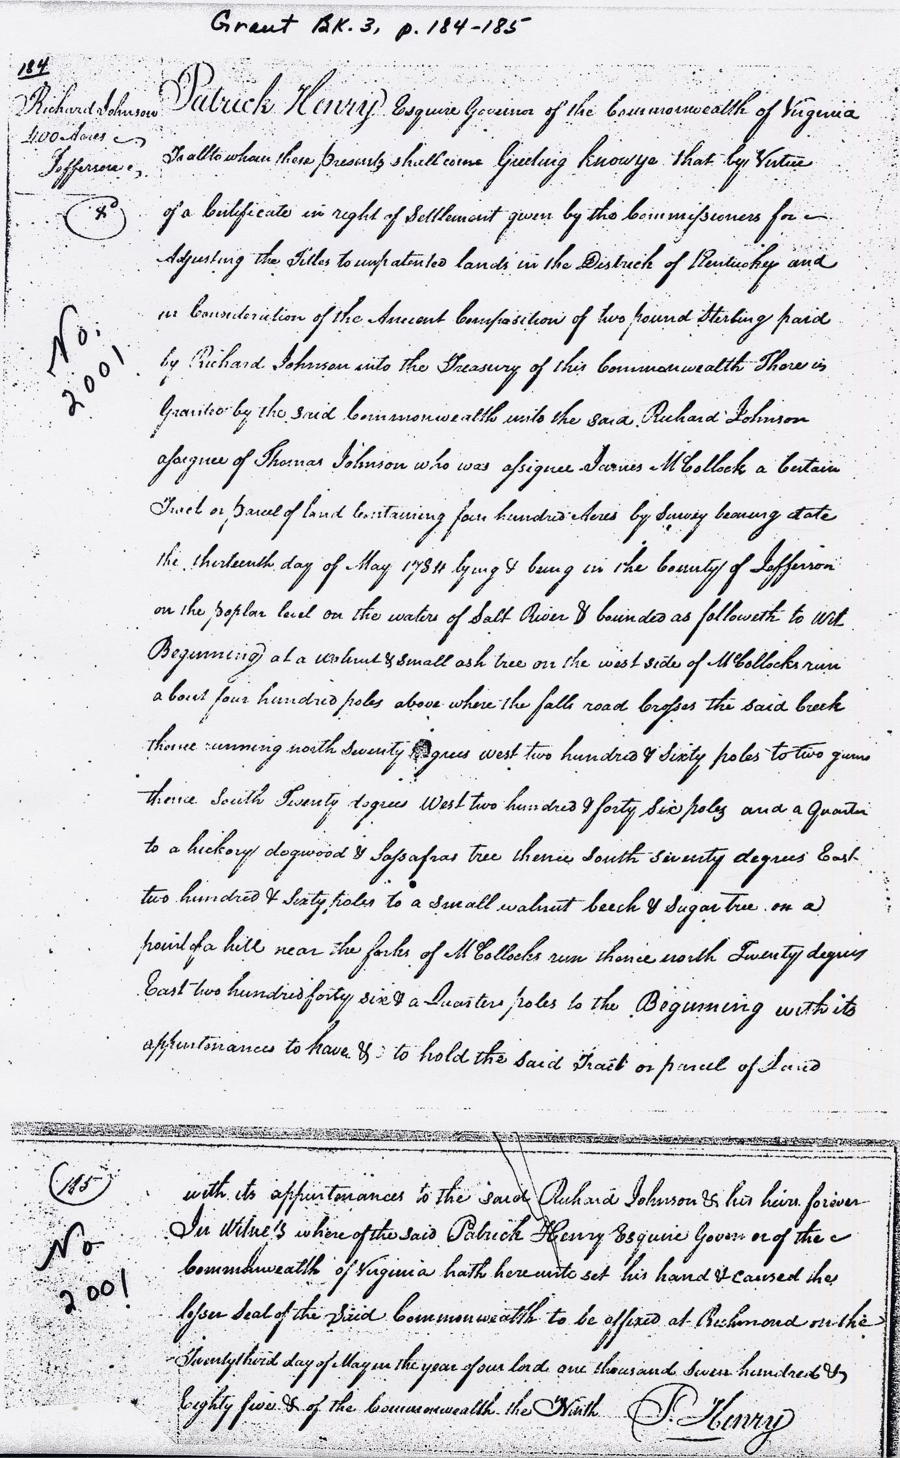 Grant BK. 3, p. 184-185
184
Richard Johnson
400 Acres
Jefferson
No:
2001
Patrick Henry Esquire Governor of the Commonwealth of Virginia
To all to whom these presents shall come Greeting know ye that by Virtue
of a Certificate in right of Settlement given by the Commissioners for
Adjusting the Titles to unpatented lands in the District of Kentuckey and
in Consideration of the Ancient Composition of two pound Sterling paid
by Richard Johnson into the Treasury of this Commonwealth There is
Granted by the said Commonwealth unto the said Richard Johnson
assignee of Thomas Johnson who was assignee James McCollock a Certain
Tract or parcel of land Containing four hundred Acres by Survey bearing date
the thirteenth day of May 1784 lying & being in the County of Jefferson
on the poplar level on the waters of Salt River & bounded as followeth to wit
Beginning at a walnut & small ash tree on the west side of McCollocks run
about four hundred poles above where the falls road Crosses the said Creek
thence running north Seventy degrees west two hundred & Sixty poles to two gums
thence South Twenty degrees West two hundred & forty Six poles and a Quarter
to a hickory dogwood & Sassafras tree thence South Seventy degrees East
two hundred & Sixty poles to a small walnut beech & Sugar tree on a
point of a hill near the forks of McCollocks run thence north Twenty degrees
East two hundred forty six & a Quarters poles to the Beginning with its
appurtenances to have & to hold the said Tract or parcel of Land
185
No
2001
with its appurtenances to the said Richard Johnson & his heirs forever
In Witness where of the said Patrick Henry Esquire Governor of the
Commonwealth of Virginia hath hereunto set his hand & caused the
lesser Seal of the Said Commonwealth to be affixed at Richmond on the
Twenty third day of May in the year of our lord one thousand Seven hundred &
Eighty five & of the Commonwealth the Ninth P. Henry